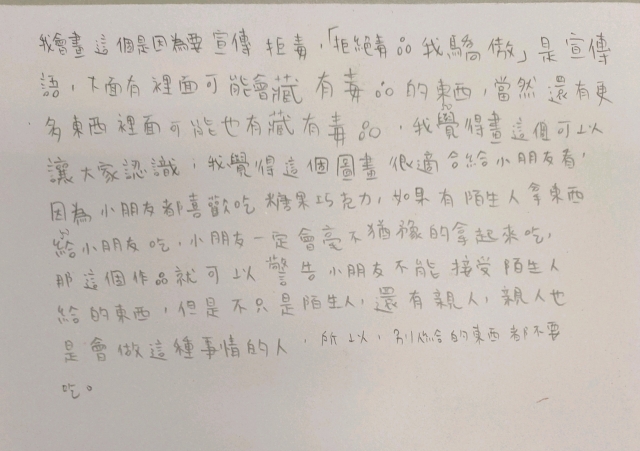 我會畫這個是因為要宣傳拒毒，「拒絕毒品我驕傲」是宣傳
語，大面有裡面可能會藏有毒品的東西，當然還有更
多東西裡面可能也有藏有毒品，我覺得畫這個可以
讓大家認識，我覺得這個圖畫很適合給小朋友看，
因為小朋友都喜歡吃糖果巧克力，如果有陌生人拿東西
給小朋友吃，小朋友一定會毫不猶豫的拿起來吃，
那這個作品就可以警告小朋友不能接受陌生人
給的東西，但是不只是陌生人，還有親人，親人也
是會做這種事情的人，所以，別人給的東西都不要
吃。